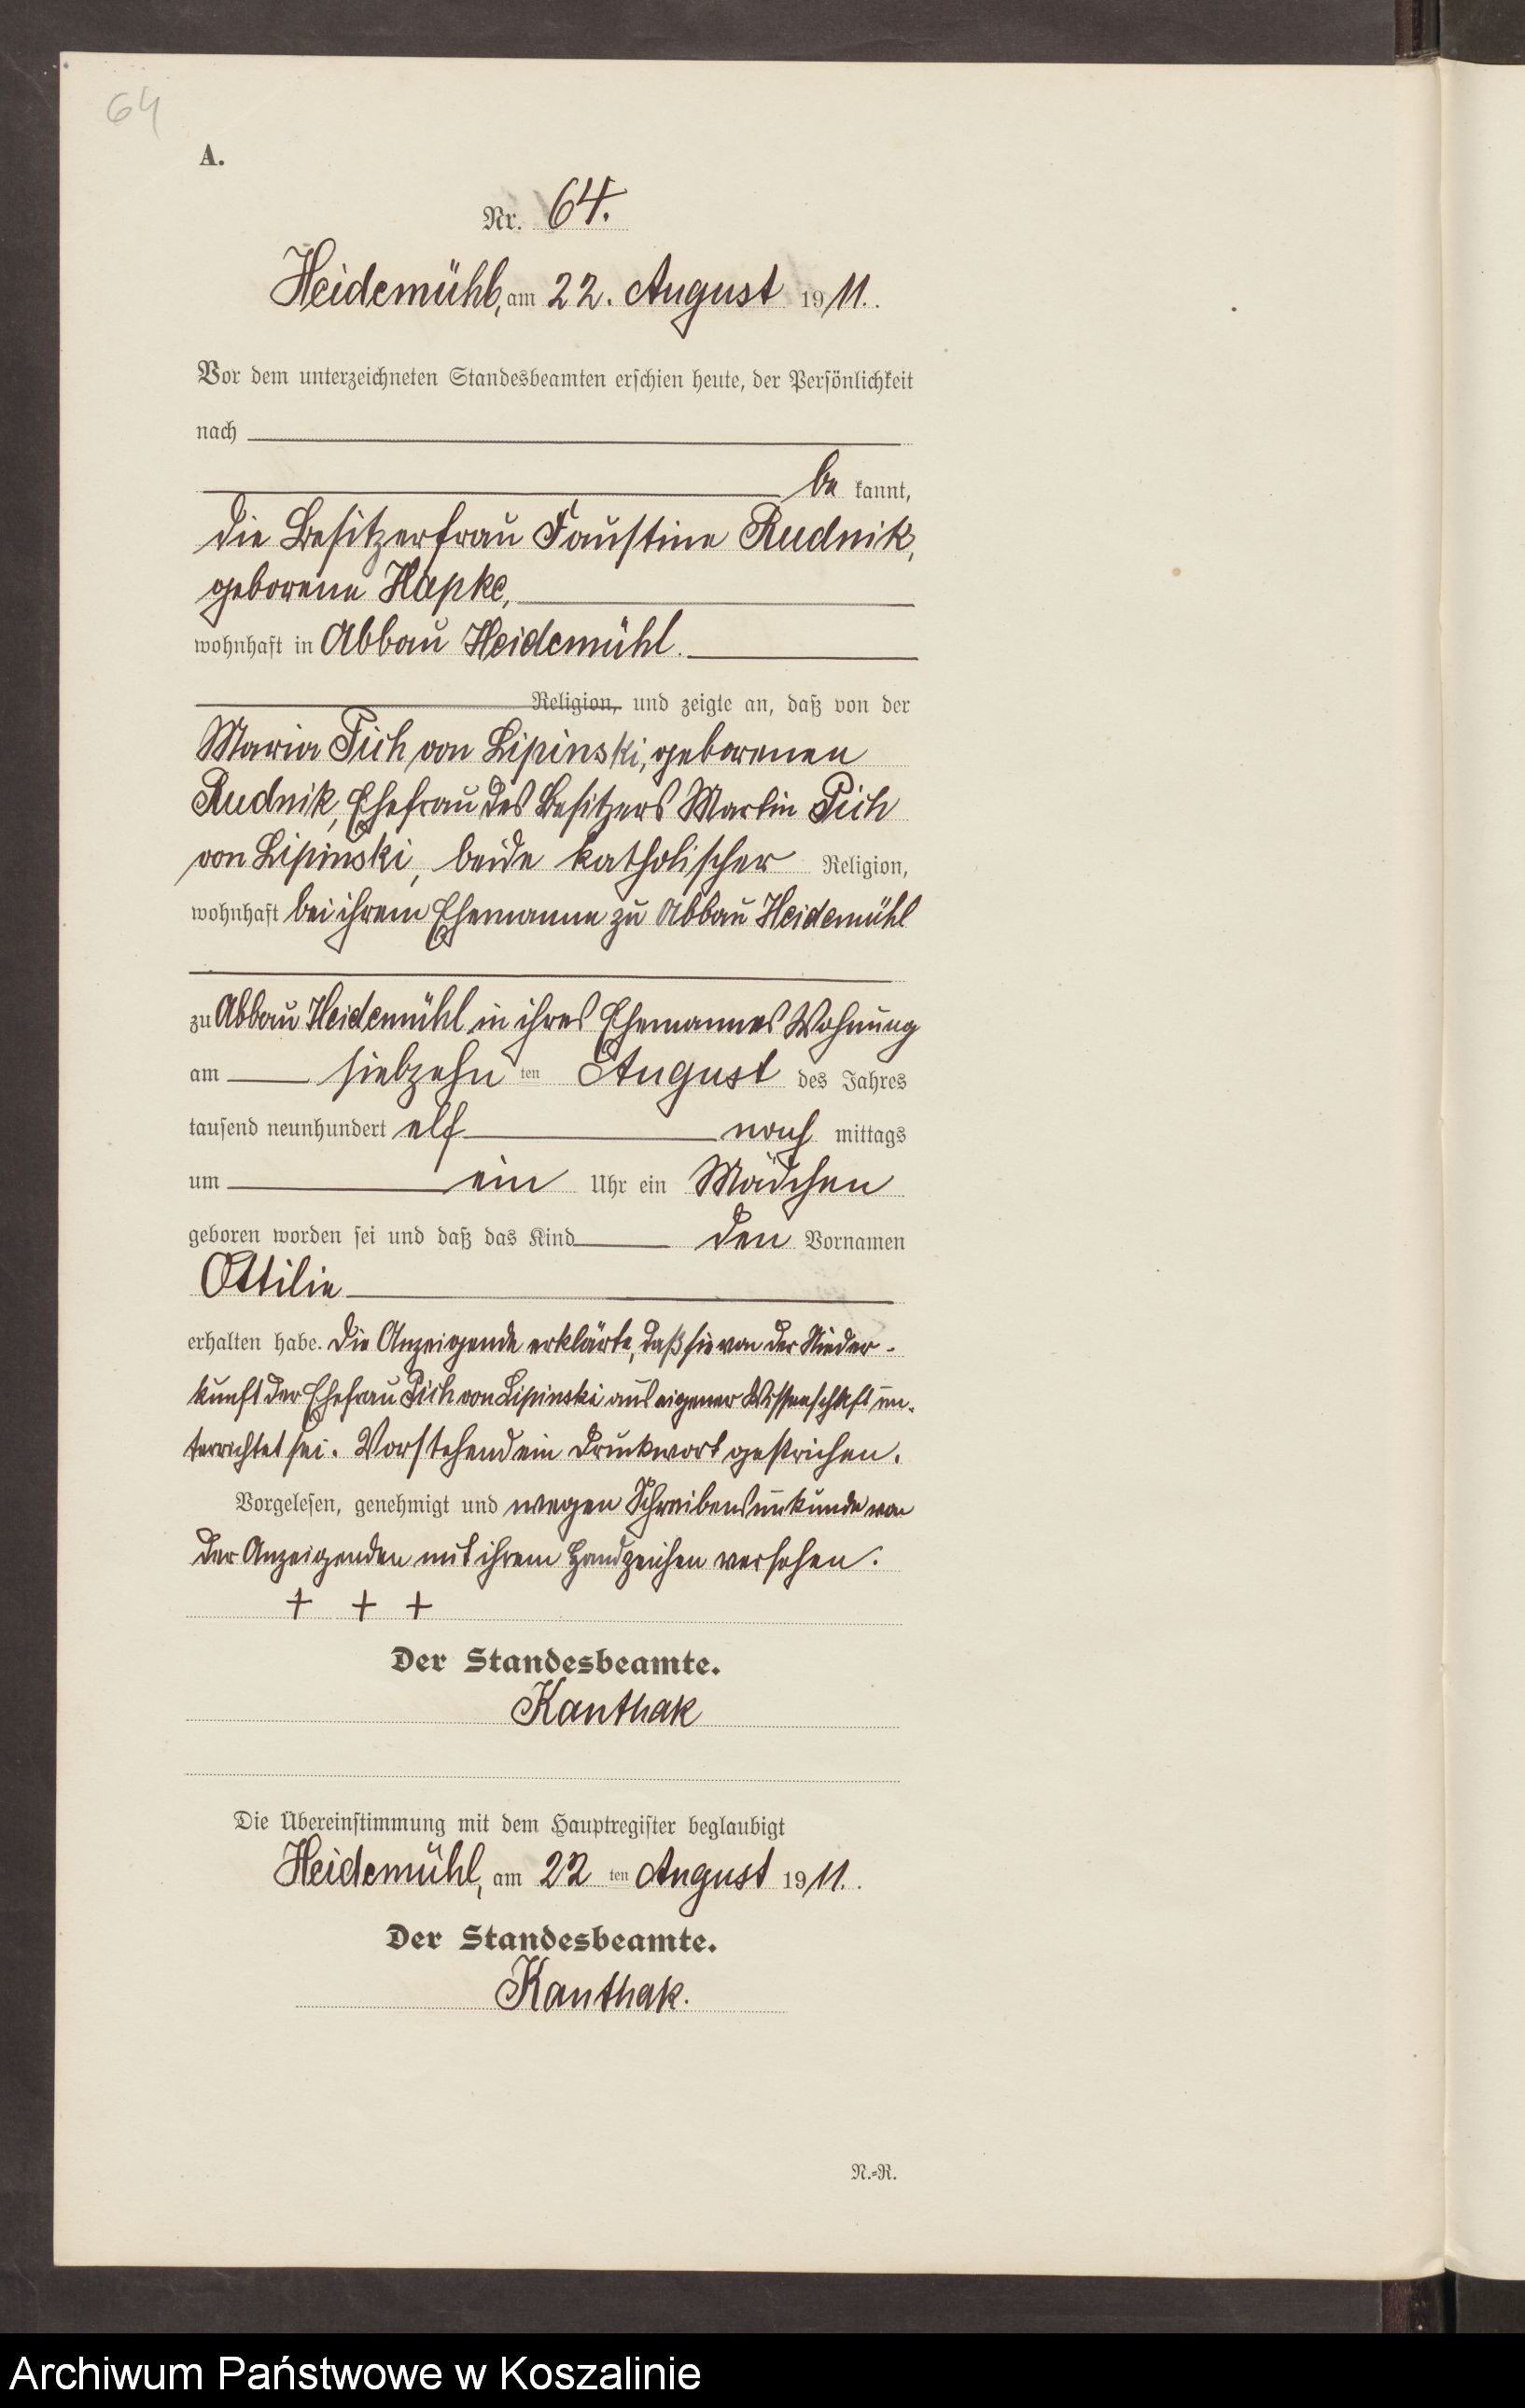 64
A.
Nr. 64.
Heidemühl, am 22. August 1911.
Vor dem unterzeichneten Standesbeamten erschien heute, der Persönlichkeit
nach
be kannt,
die Besitzerfrau Faustine Rudnik,
geborene Hapke,
wohnhaft in Abbau Heidemühl.
Religion, und zeigte an, daß von der
Maria Pich von Lipinski, geborenen
Rudnik, Ehefrau des Besitzers Martin Pich
von Lipinski, beide katholischer Religion,
wohnhaft bei ihrem Ehemanne zu Abbau Heidemühl
zu Abbau Heidemühl in ihres Ehemannes Wohnung
am siebzehn ten August des Jahres
tausend neunhundert elf nach mittags
um ein Uhr ein Mädchen
geboren worden sei und daß das Kind den Vornamen
Ottilie
erhalten habe. Die Anzeigende erklärte, daß sie von der Nieder-
kunft der Ehefrau Pich von Lipinski aus eigener Wissenschaft un-
terrichtet sei. Vorstehend ein Druckwort gestrichen.
Vorgelesen, genehmigt und wegen Schreibensunkunde von
der Anzeigenden mit ihrem Handzeichen versehen.
+ + +
Der Standesbeamte.
Kanthak
Die Übereinstimmung mit dem Hauptregister beglaubigt
Heidemühl, am 22 ten August 1911.
Der Standesbeamte.
Kanthak.
N.=R.
Archiwum Państwowe w Koszalinie